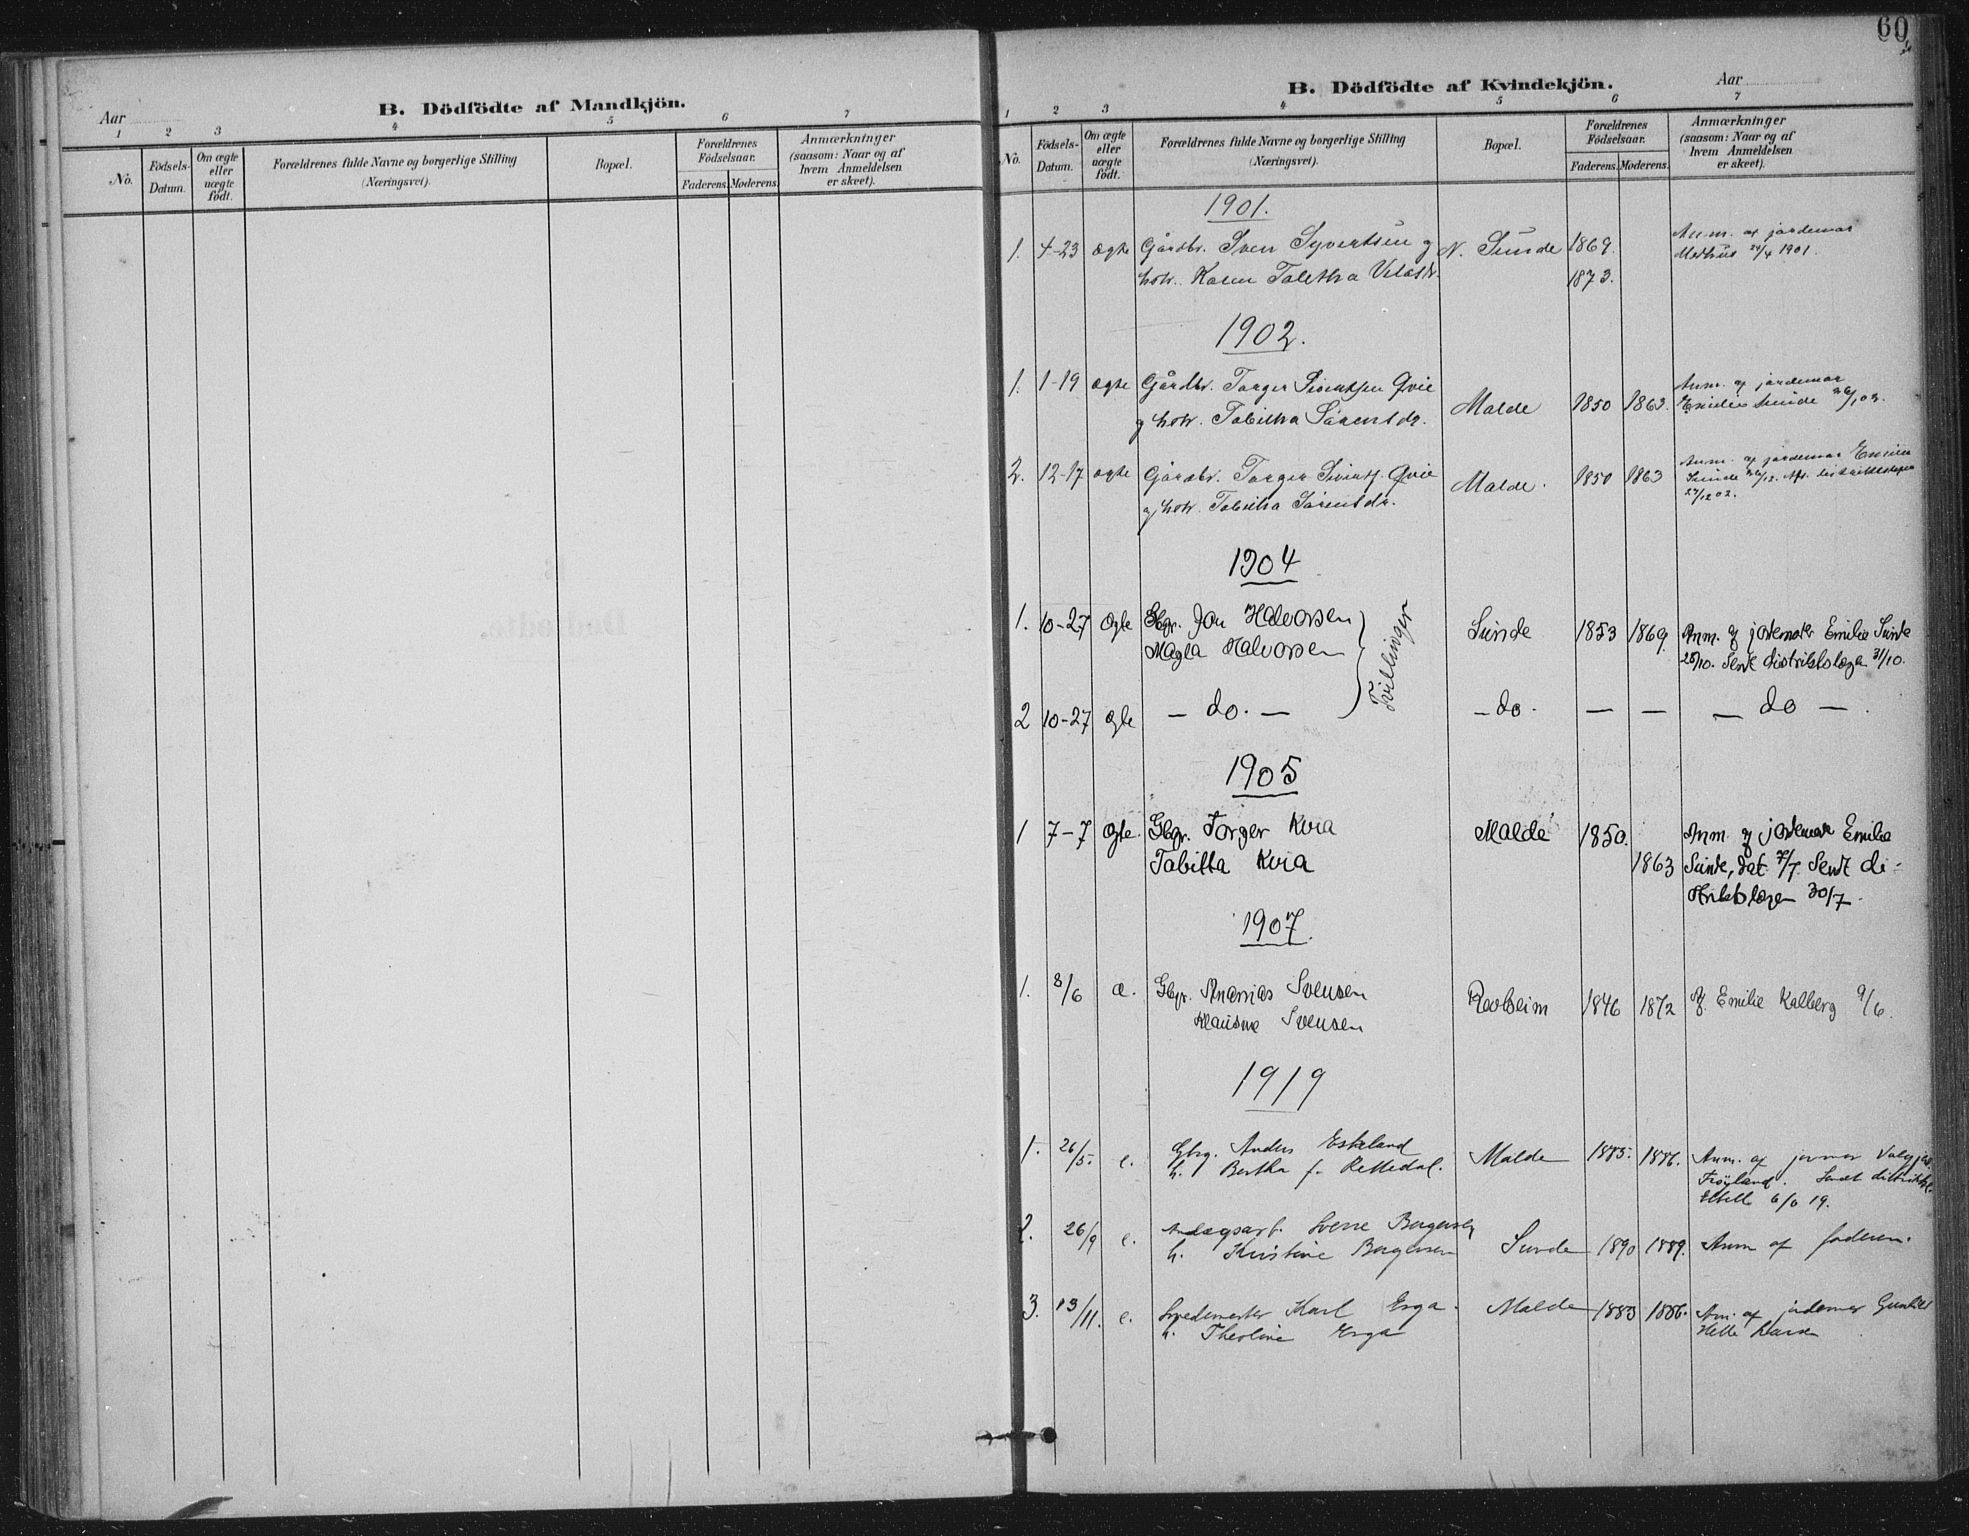 60
B. Dödfödte af Mandkjön.
Aar
1 2 3 4 5 6 7
No. Födsels-Datum. Om ægte eller uægte födt. Forældrenes fulde Navne og borgerlige Stilling (Næringsvei). Bopæl. Forældrenes Födselsaar. Faderens. Moderens. Anmærkninger (saasom: Naar og af hvem Anmeldelsen er skeet).
B. Dödfödte af Kvindekjön.
Aar
1 2 3 4 5 6 7
No. Födsels-Datum. Om ægte eller uægte födt. Forældrenes fulde Navne og borgerlige Stilling (Næringsvei). Bopæl. Forældrenes Födselsaar. Faderens. Moderens. Anmærkninger (saasom: Naar og af hvem Anmeldelsen er skeet).
1901.
1. 4-23 ægte Gårdbr. Sven Syvertsen og N. Sunde 1869. Anm. af jordemor
hstr. Karen Taletha 1873. Medhus 24/4 1901.
1902.
1. 1-19 ægte Gårdbr. Torger Sivertsen Qvie Malde 1850 1863. Anm. af jordemor
og hstr. Tabitha Sörensdr. Emilie Sunde
2. 12-17 ægte Gårdbr. Torger Qvie Malde. 1850 1863 Anm. af jordemor Emilie
og hstr. Tabitha Sörensdr. Sunde
27/12 02.
1904
1. 10-27 ægte Gbr. Jon Halvorsen Sunde 1853 1869. Anm. af jordemoder Emilie Sunde
Magla Halvorsen Tvillinger 28/10. Sendt distriktslægen 31/10.
2 10-27 ægte — do. — — do. — — — do —.
1905
1 7-7 ægte. Gbr. Torger Kvia Malde 1850. Anm. af jordemor Emilie
Tabitta Kvia 1863 Sunde, dat. 7/7. Sendt di-
striktslægen 30/7.
1907.
1. 8/6 æ. Gbr. Ananias Svensen Revheim 1846 1872 Af Emilie Kalberg 9/6.
Svensen
1919
1. 26/5. e. Gbrg. Anders Eskeland Malde 1885. 1886. Anm. af jormor
h. Bertha f. Rettedal. Frøyland. Sendt
6/6 19.
2. 26/9 e. Sverre Bergersen Sunde 1890 1889. Anm af faderen.
h. Kristine Bergersen
3. 13/11. e. Karl Erga. Malde 1883 1886. Anm. af jordemor
h. Theoline Erga Helle